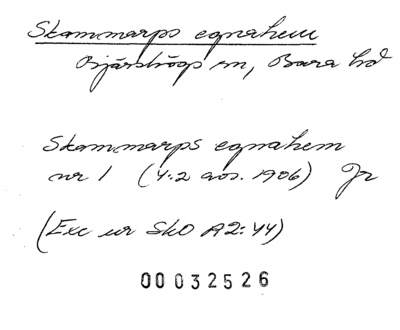 Skammarps egnahem
Bjärshögs sn, Bara hd
Skammarps egnahem
nr 1 (4:2 avs. 1906) Jr
(Exc ur SkO A2:44)
00 032526